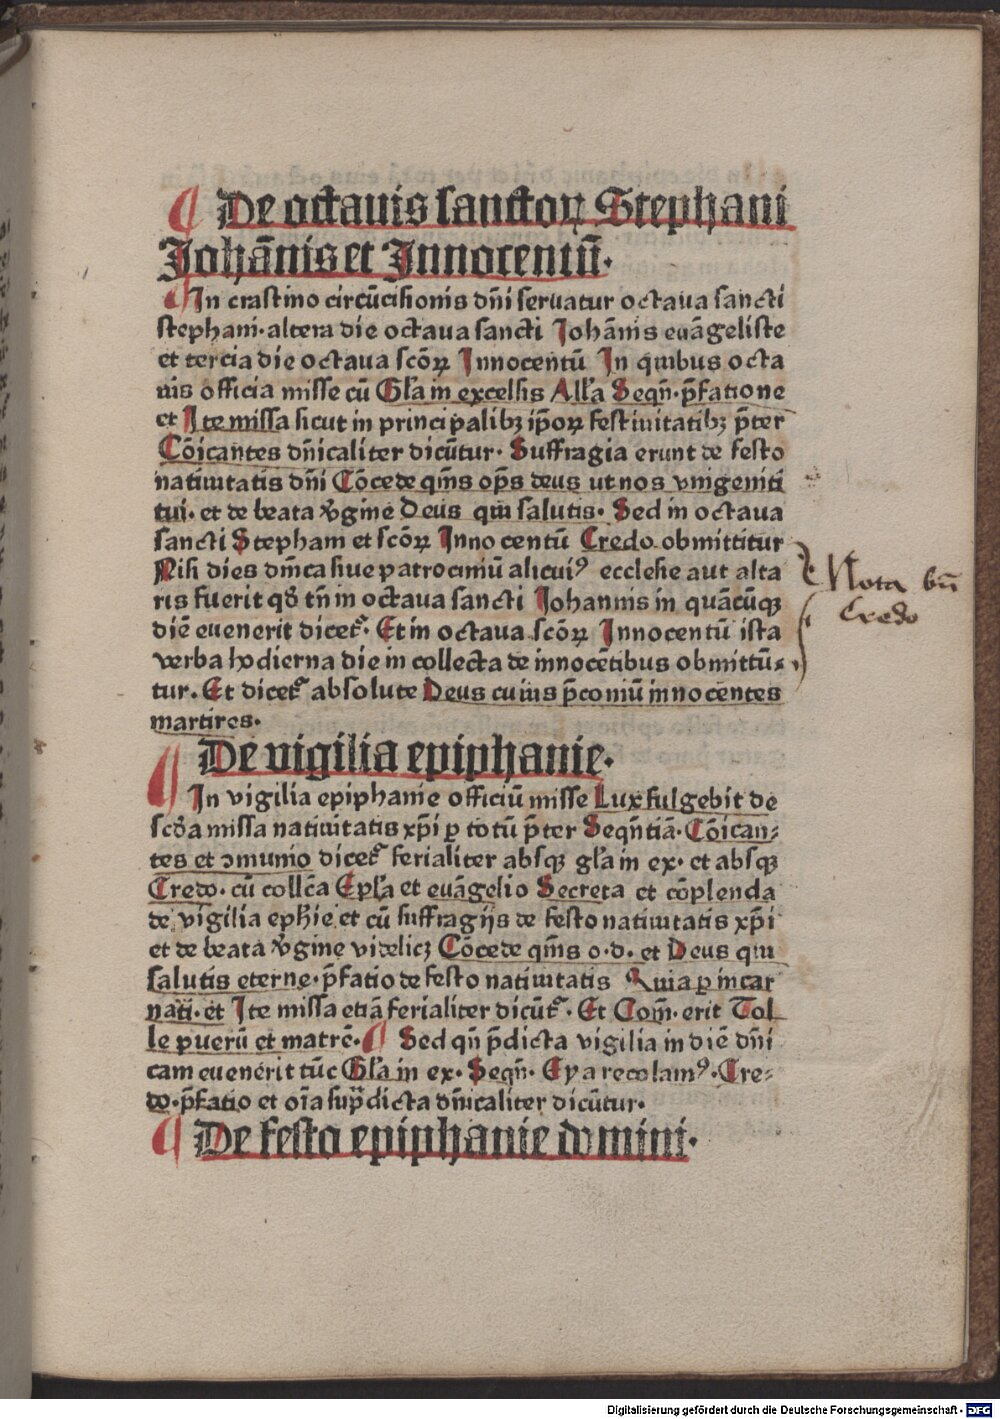 ¶ De octauis sanctoꝝ Stephani
Johānis et Innocentū·
¶ In crastino circūcisionis dn̄i seruatur octaua sancti
stephani·altera die octaua sancti Johānis euāgeliste
et tercia die octaua scōꝝ Innocentū In quibus octa
uis officia misse cū Gl'a in excelsis All'a Seqn̄·p̄fatione
et Ite missa sicut in principalibꝫ ip̄oꝝ festiuitatibꝫ p̄ter
Cōicantes dn̄icaliter dicūtur· Suffragia erunt de festo
natiuitatis dn̄i Cōcede qm̄s op̄s deus ut nos vnigeniti
tui· et de beata v̄gine Deus qui salutis· Sed in octaua
sancti Stephani et scōꝝ Innocentū Credo obmittitur
Nisi dies dn̄ica siue patrociniū alicuiꝰ ecclesie aut alta
ris fuerit qd̄ tn̄ in octaua sancti Johannis in quācūqꝫ
diē euenerit dicet᷑· Et in octaua scōꝝ Innocentū ista
verba hodierna die in collecta de innocētibus obmittū⸗
tur. Et dicet᷑ absolute Deus cuius p̄coniū innocentes
martires·
Nota bn̄
Credo
¶ De vigilia epiphanie·
In vigilia epiphanie officiū misse Lux fulgebit de
scd̄a missa natiuitatis xp̄i ꝑ totū p̄ter Seqn̄tiā· Cōican⸗
tes et ꝯmunio dicet᷑ ferialiter absqꝫ gl'a in ex· et absqꝫ
Credo· cū collc̄a Epl'a et euāgelio Secreta et cōplenda
de vigilia eph̄ie et cū suffragijs de festo natiuitatis xp̄i
et de beata v̄gine videlicꝫ Cōcede qm̄s o·d· et Deus qui
salutis eterne·p̄fatio de festo natiuitatis Quia ꝑ incar
nati· et Ite missa etiā ferialiter dicūt᷑· Et Com̄· erit Tol
le puerū et matrē· ¶ Sed qn̄ p̄dicta vigilia in diē dn̄i
cam euenerit tūc Gl'a in ex· Seqn̄· Eya recolamꝰ·Cre⸗
do·p̄fatio et oīa sup̄dicta dn̄icaliter dicūtur·
¶ De festo epiphanie domini·
Digitalisierung gefördert durch die Deutsche Forschungsgemeinschaft - DFG